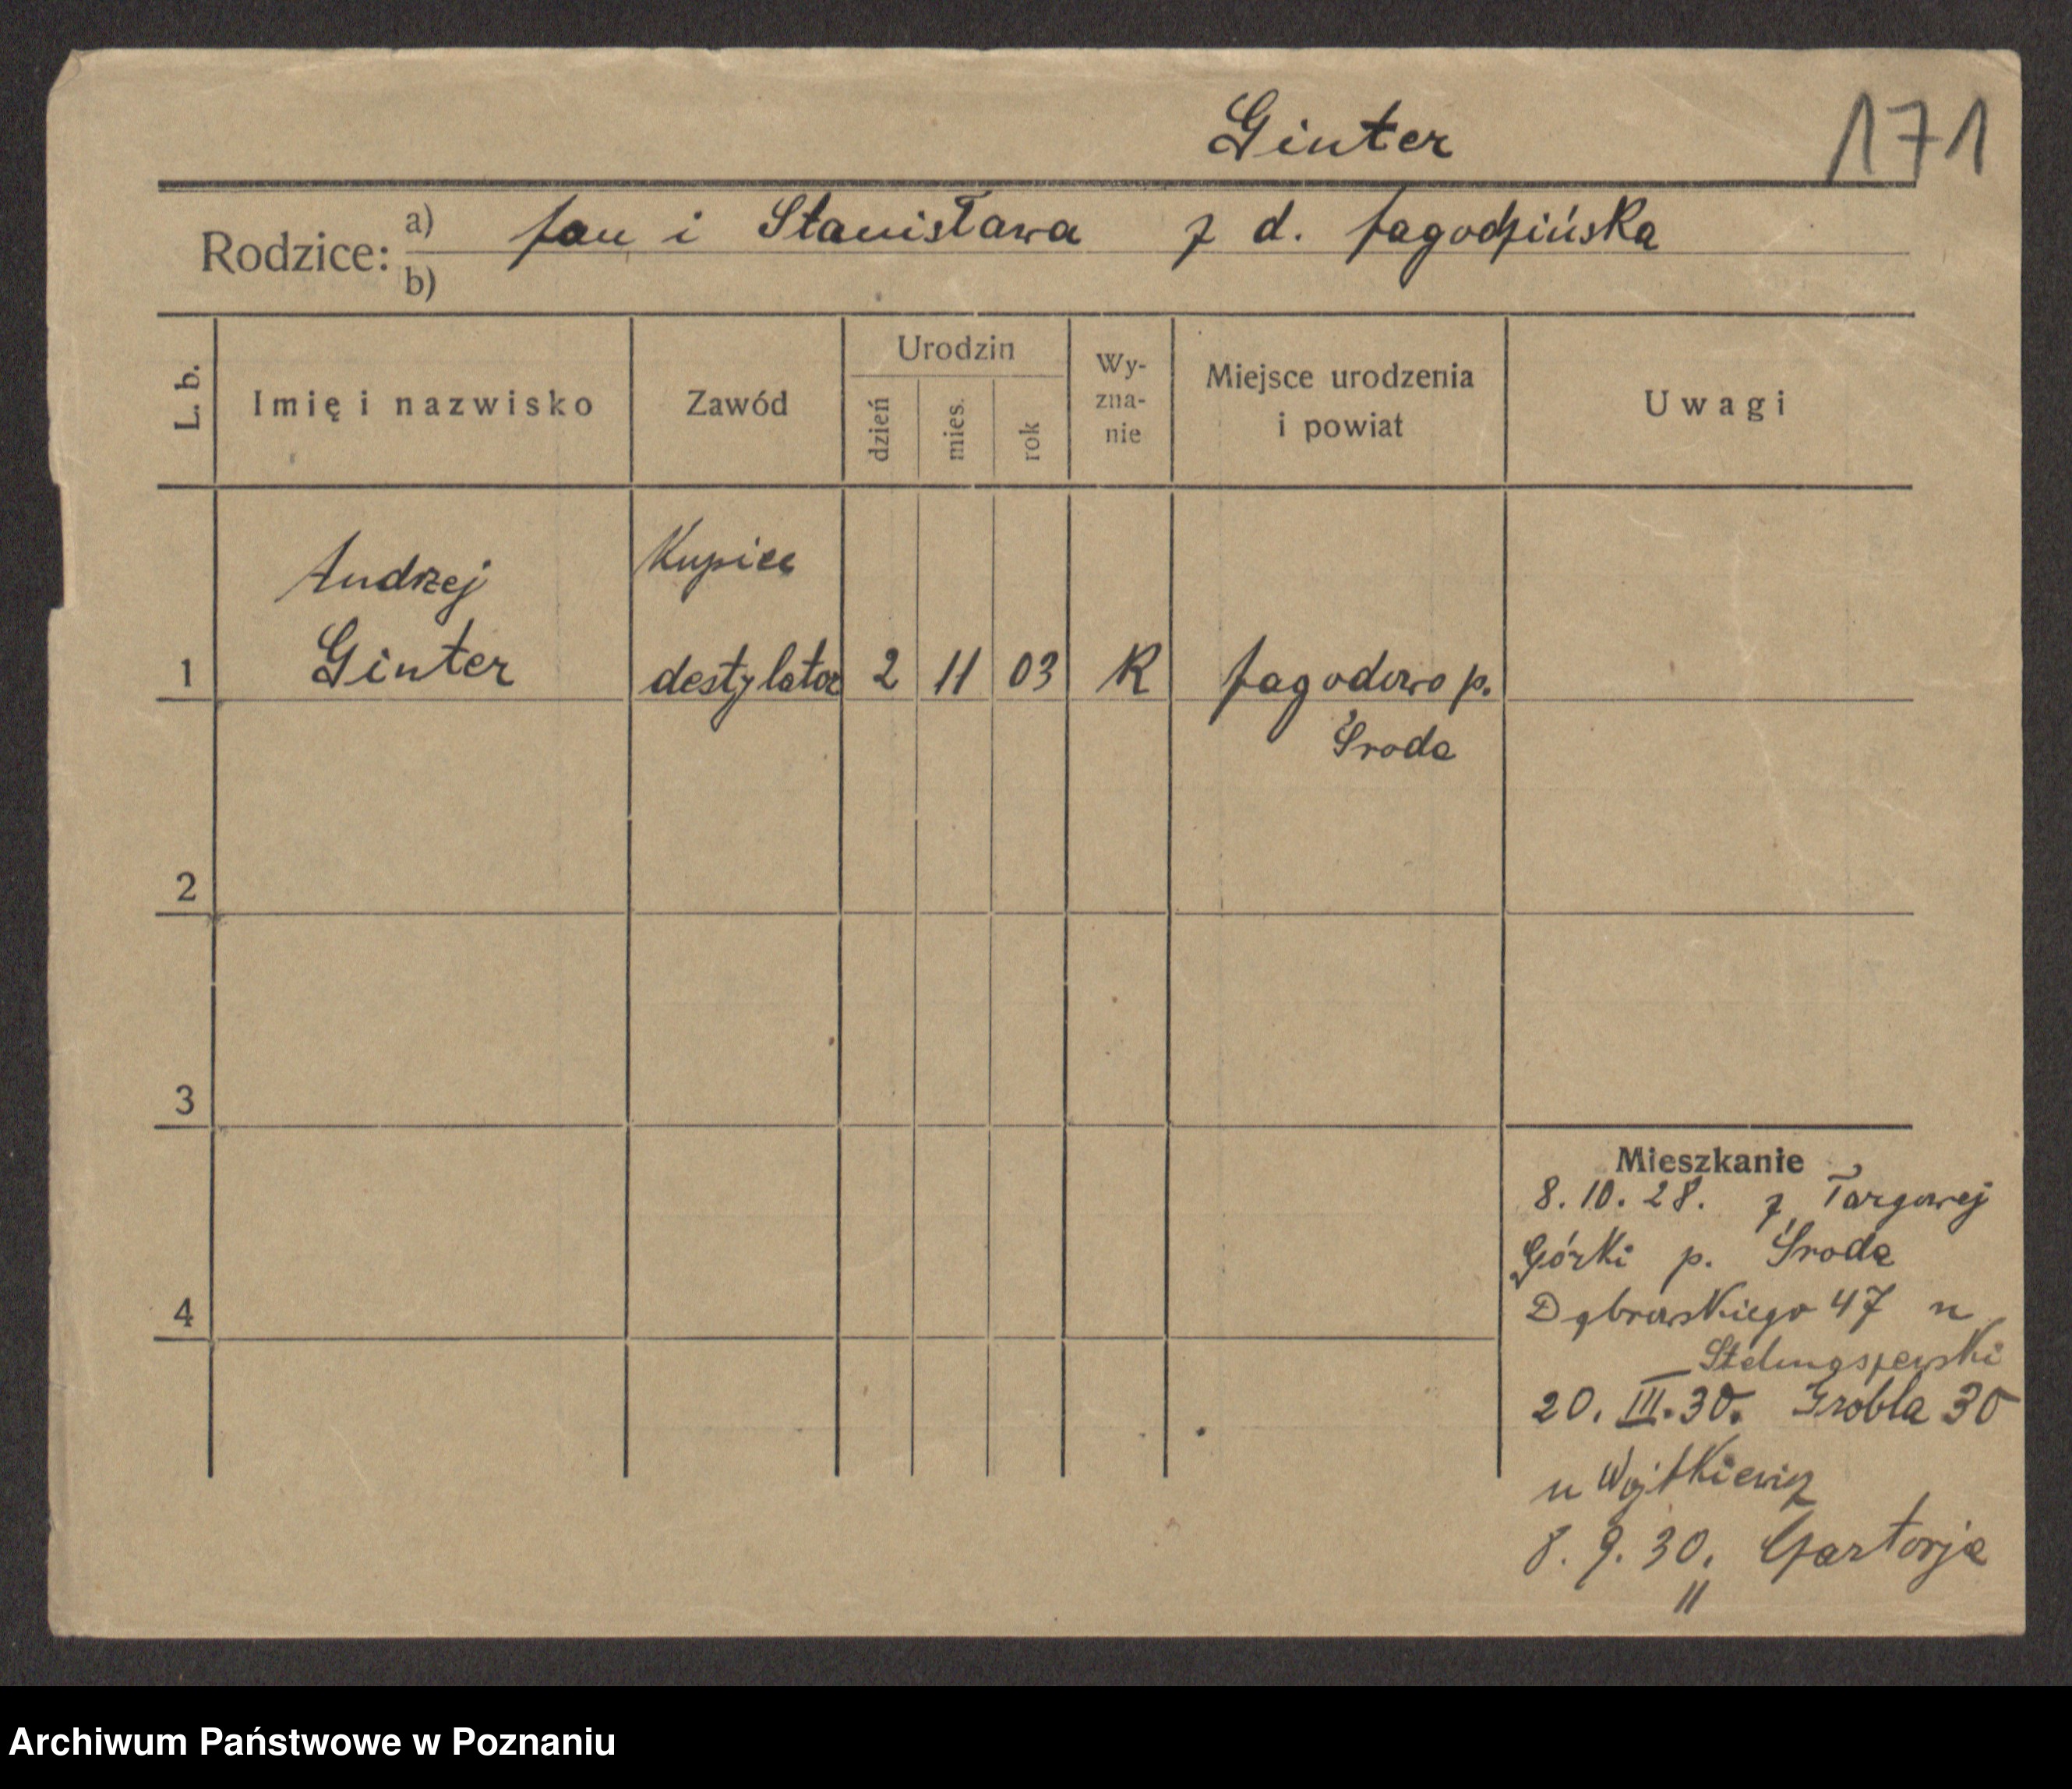 Ginter 171
Rodzice: a) Jan i Stanisława z d. Jagodzińska
b)
L. b. Imię i nazwisko Zawód Urodzin dzień mies. rok Wy-zna-nie Miejsce urodzenia i powiat Uwagi
Andrzej Kupiec
1 Ginter destylator 2 11 03 R Jagodowo p.
Środa
2
3
Mieszkanie
8.10.28. z Targowej
Górki p. Środa
4 Dąbrowskiego 47 u
20. III. 30. Grobla 30
u Wojtkiewicz
8. 9. 30.
"
Archiwum Państwowe w Poznaniu